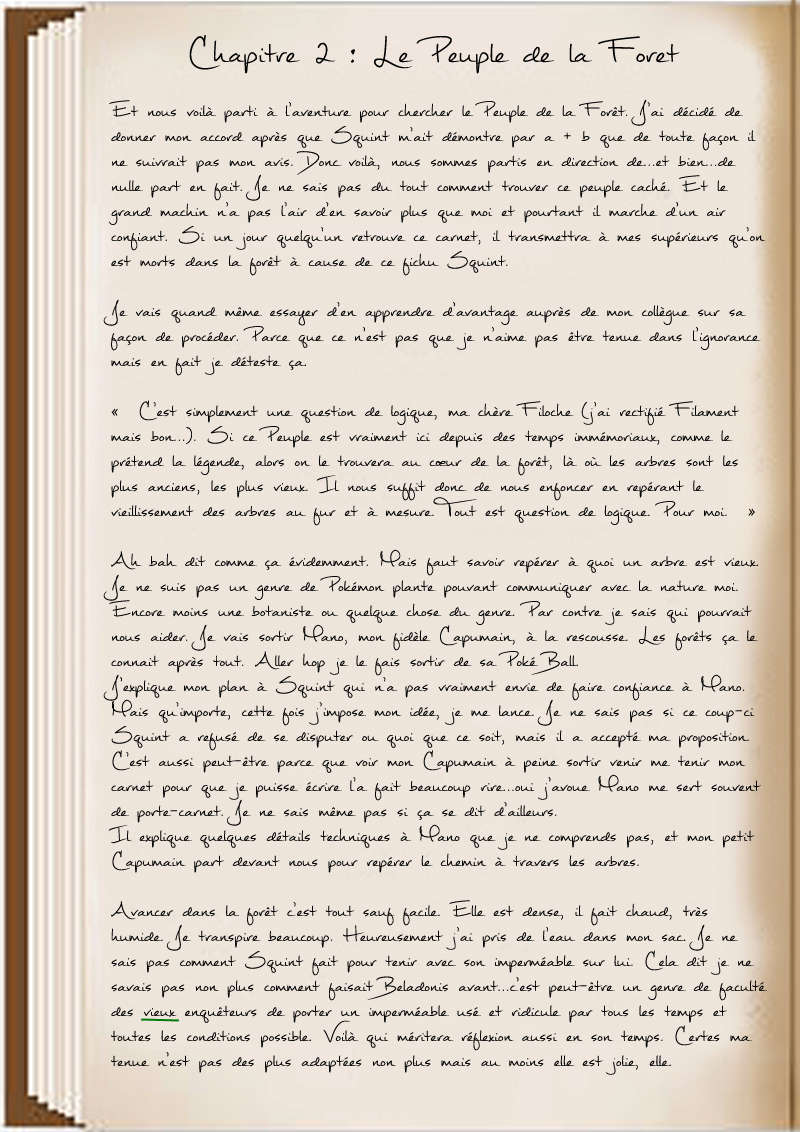 Chapitre 2 : Le Peuple de la Foret
Et nous voilà parti à l'aventure pour chercher le Peuple de la Forêt. J'ai décidé de
donner mon accord après que Squint m'ait démontre par a + b que de toute façon il
ne suivrait pas mon avis. Donc voilà, nous sommes partis en direction de...et bien...de
nulle part en fait. Je ne sais pas du tout comment trouver ce peuple caché. Et le
grand machin n'a pas l'air d'en savoir plus que moi et pourtant il marche d'un air
confiant. Si un jour quelqu'un retrouve ce carnet, il transmettra à mes supérieurs qu'on
est morts dans la forêt à cause de ce fichu Squint.
Je vais quand même essayer d'en apprendre d'avantage auprès de mon collègue sur sa
façon de procéder. Parce que ce n'est pas que je n'aime pas être tenue dans l'ignorance
mais en fait je déteste ça.
« C'est simplement une question de logique, ma chère Filoche (j'ai rectifié Filament
mais bon...). Si ce Peuple est vraiment ici depuis des temps immémoriaux, comme le
prétend la légende, alors on le trouvera au cœur de la forêt, là où les arbres sont les
plus anciens, les plus vieux. Il nous suffit donc de nous enfoncer en repérant le
vieillissement des arbres au fur et à mesure. Tout est question de logique. Pour moi. »
Ah bah dit comme ça évidemment. Mais faut savoir repérer à quoi un arbre est vieux.
Je ne suis pas un genre de Pokémon plante pouvant communiquer avec la nature moi.
Encore moins une botaniste ou quelque chose du genre. Par contre je sais qui pourrait
nous aider. Je vais sortir Mano, mon fidèle Capumain, à la rescousse. Les forêts ça le
connait après tout. Aller hop je le fais sortir de sa Poké Ball.
J'explique mon plan à Squint qui n'a pas vraiment envie de faire confiance à Mano.
Mais qu'importe, cette fois j'impose mon idée, je me lance. Je ne sais pas si ce coup-ci
Squint a refusé de se disputer ou quoi que ce soit, mais il a accepté ma proposition.
C'est aussi peut-être parce que voir mon Capumain à peine sortir venir me tenir mon
carnet pour que je puisse écrire l'a fait beaucoup rire...oui j'avoue Mano me sert souvent
de porte-carnet. Je ne sais même pas si ça se dit d'ailleurs.
Il explique quelques détails techniques à Mano que je ne comprends pas, et mon petit
Capumain part devant nous pour repérer le chemin à travers les arbres.
Avancer dans la forêt c'est tout sauf facile. Elle est dense, il fait chaud, très
humide. Je transpire beaucoup. Heureusement j'ai pris de l'eau dans mon sac. Je ne
sais pas comment Squint fait pour tenir avec son imperméable sur lui. Cela dit je ne
savais pas non plus comment faisait Beladonis avant...c'est peut-être un genre de faculté
des vieux enquêteurs de porter un imperméable usé et ridicule par tous les temps et
toutes les conditions possible. Voilà qui méritera réflexion aussi en son temps. Certes ma
tenue n'est pas des plus adaptées non plus mais au moins elle est jolie, elle.